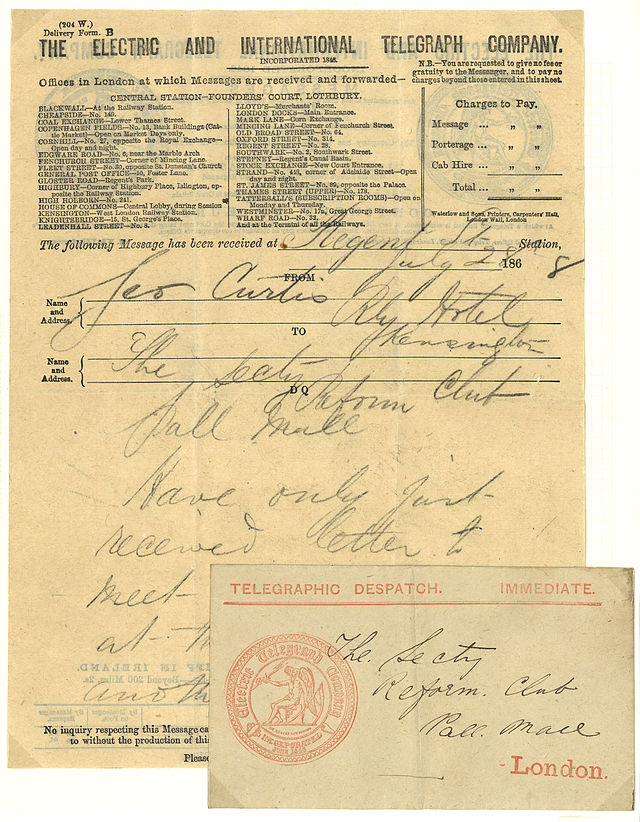 (204 W.)
Delivery Form. B
THE ELECTRIC AND INTERNATIONAL TELEGRAPH COMPANY.
INCORPORATED 1846.
N.B.—You are requested to give no fee or
gratuity to the Messenger, and to pay no
charges beyond those entered in this sheet.
Offices in London at which Messages are received and forwarded—
CENTRAL STATION—FOUNDERS' COURT, LOTHBURY.
BLACKWALL—At the Railway Station.
CHEAPSIDE—No. 140.
COAL EXCHANGE—Lower Thames Street.
COPENHAGEN FIELDS—No. 13, Bank Buildings (Cat-
tle Market)—Open on Market Days only.
CORNHILL—No. 27, opposite the Royal Exchange—
Open day and night.
EDGWARE ROAD—No. 6, near the Marble Arch
FENCHURCH STREET—Corner of Mincing Lane.
FLEET STREET—No. 80, opposite St. Dunstan's Church
GENERAL POST OFFICE—10, Foster Lane.
GLOSTER ROAD—Regent's Park.
HIGHBURY—Corner of Highbury Place, Islington, op-
posite the Railway Station.
HIGH HOLBORN—No. 241.
HOUSE OF COMMONS—Central Lobby, during Session
KENSINGTON—West London Railway Station.
KNIGHTSBRIDGE—15, St. George's Place.
LEADENHALL STREET—No. 8.
LLOYD'S—Merchants' Room.
LONDON DOCKS—Main Entrance.
MARK LANE—Corn Exchange.
MINCING LANE—Corner of Fenchurch Street.
OLD BROAD STREET—No. 64.
OXFORD STREET—No. 314.
REGENT STREET—No. 28.
SOUTHWARK—No. 2, Southwark Street.
STEPNEY—Regent's Canal Basin.
STOCK EXCHANGE—New Court Entrance.
STRAND—No. 448, corner of Adelaide Street—Open
day and night.
ST. JAMES STREET—No. 89, opposite the Palace.
THAMES STREET (UPPER)—No. 178.
TATTERSALL'S (SUBSCRIPTION ROOMS)—Open on
Monday and Thursday.
WESTMINSTER—No. 17a, Great George Street.
WILTON ROAD—No. 32.
And at the Termini of all the Railways.
Charges to Pay.
Message ... „ „
Porterage ... „ „
Cab Hire ... „ „
Total ... „ „
Waterlow and Sons, Printers, Carpenters' Hall,
London Wall, London
The following Message has been received at Regent St Station,
July 28 1868
FROM
Name
and
Address.
Geo Curtis Rly Hotel
Kensington
TO
Name
and
Address.
The Secty
DQ
Reform Club
Pall Mall
Have only just
received letter to
meet
at
No inquiry respecting this Message ca
to without the production of thi
Please
TELEGRAPHIC DESPATCH. IMMEDIATE.
Electric Telegraph Company
INCORPORATED
JUNE 1846
The Secty
Reform. Club
Pall. Mall
London.